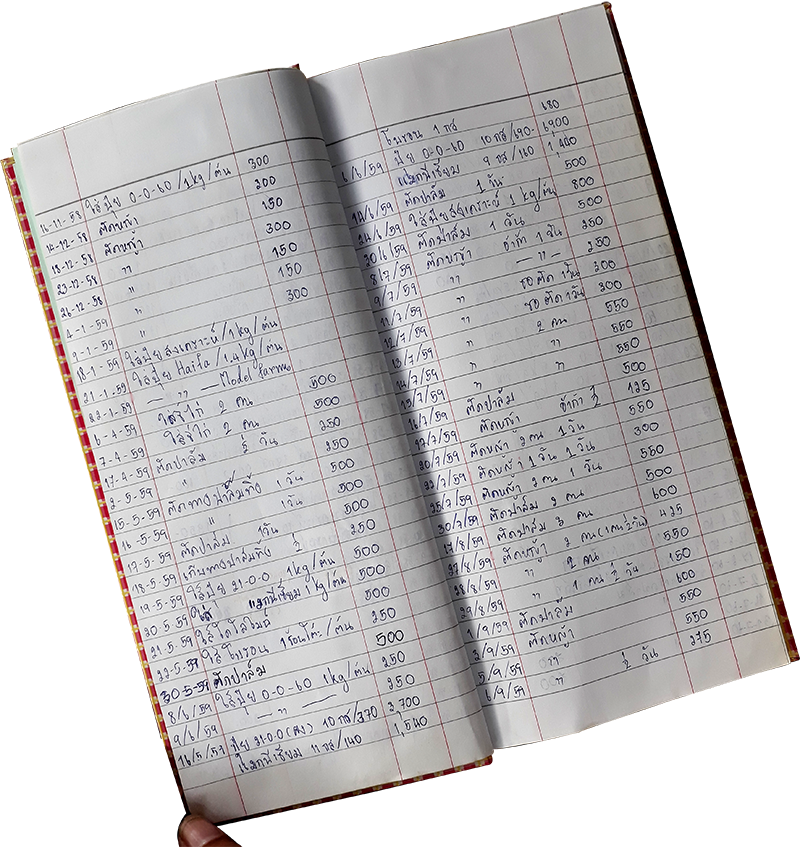 14-11-58 ใส่ปุ๋ย 0-0-60 /1kg/ต้น 300
14-12-58 ตัดหญ้า 300
18-12-58 ตัดหญ้า 150
23-12-58 " 300
26-12-58 " 150
4-1-59 " 150
9-1-59 " 300
18-1-59 ใส่ปุ๋ยสังเคราะห์/1kg/ต้น
21-1-59 ใส่ปุ๋ย Haifa/1.4kg/ต้น
22-1-59 — " — Model farm
6-4-59 ใส่ขี้ไก่ 2 คน 500
7-4-59 ใส่ขี้ไก่ 2 คน 500
17-4-59 ตัดปาล์ม ½ วัน 250
2-5-59 " 250
15-5-59 ตัดทางปาล์มทิ้ง 1 วัน 500
16-5-59 " 1 วัน 500
17-5-59 ตัดปาล์ม 1 วัน 500
18-5-59 เก็บทางปาล์มทิ้ง ½ 250
19-5-59 ใส่ปุ๋ย 21-0-0 1kg/ต้น 500
20-5-59 ใส่ แมกนีเซียม 1kg/ต้น 500
21-5-59 ใส่โดโลไมล์ 500
22-5-59 ใส่ โบรอน 1ช้อนโต๊ะ/ต้น 250
30-5-59 ตัดปาล์ม 500
8/6/59 ใส่ปุ๋ย 0-0-60 1kg/ต้น 250
9/6/59 — " — 250
16/5/59 ปุ๋ย 21-0-0 10 กส/370 3,700
แมกนีเซียม 11 กส/140 1,540
โบรอน 1 กส 680
6/6/59 ปุ๋ย 0-0-60 10 กส/690- 6900
แมกนีเซียม 9 กส/160 1,440
14/6/59 ตัดปาล์ม 1 วัน 500
24/6/59 ใส่ปุ๋ยสังเคราะห์ 1 kg/ต้น 800
30/6/59 ตัดปาล์ม 1 วัน 500
8/7/59 ตัดหญ้า 1 วัน 250
9/7/59 " — " — 250
11/7/59 " ตัด 1วัน 300
12/7/59 " ตัด 1วัน 300
13/7/59 " 2 คน 550
14/7/59 " " 550
15/7/59 " " 550
16/7/59 ตัดปาล์ม 500
17/7/59 ตัดหญ้า ½ 125
20/7/59 ตัดหญ้า 2 คน 1 วัน 550
22/7/59 ตัดหญ้า 1 วัน 1 วัน 300
25/7/59 ตัดหญ้า 2 คน 1 วัน 550
30/7/59 ตัดปาล์ม 2 คน 500
17/8/59 ตัดปาล์ม 3 คน 600
27/8/59 ตัดหญ้า 2 คน (1คน ½วัน) 425
28/8/59 " 2 คน 550
29/8/59 " 1 คน ½ วัน 150
1/9/59 ตัดปาล์ม 600
3/9/59 ตัดหญ้า 550
5/9/59 " 550
6/9/59 " ½ วัน 275